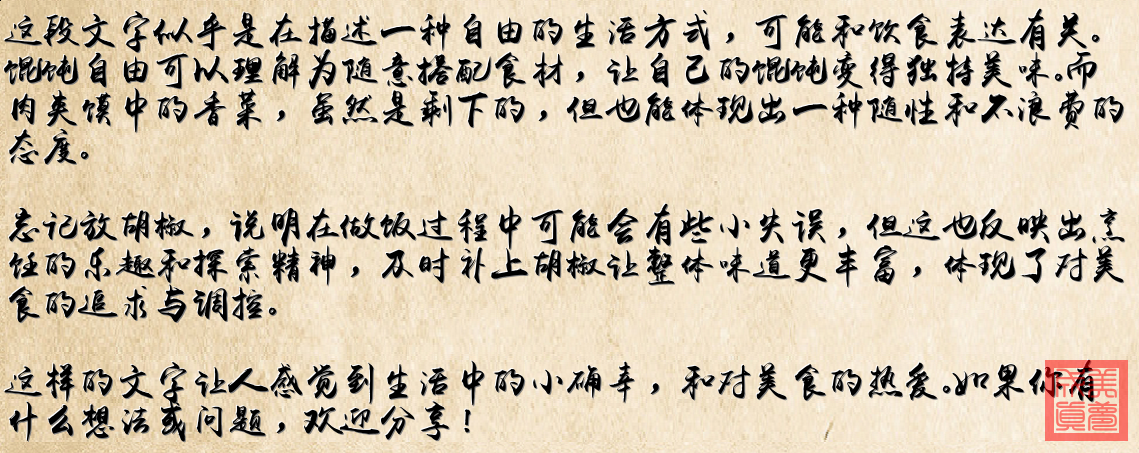 这段文字似乎是在描述一种自由的生活方式，可能和饮食表达有关。
馄饨自由可以理解为随意搭配食材，让自己的馄饨变得独特美味。而
肉夹馍中的香菜，虽然是剩下的，但也能体现出一种随性和不浪费的
态度。
忘记放胡椒，说明在做饭过程中可能会有些小失误，但这也反映出烹
饪的乐趣和探索精神，及时补上胡椒让整体味道更丰富，体现了对美
食的追求与调控。
这样的文字让人感觉到生活中的小确幸，和对美食的热爱。如果你有
什么想法或问题，欢迎分享！